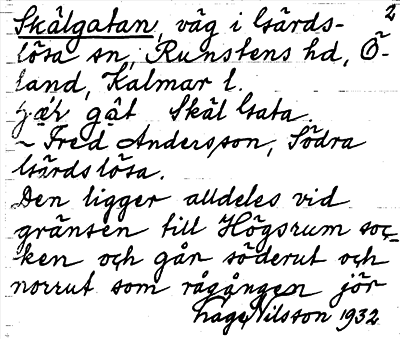 2
Skälgatan, väg i Gärds-
lösa sn, Runstens hd, Ö-
land, Kalmar l.
gåt Skäl Gata.
~ Fred Andersson, Södra
Gärdslösa.
Den ligger alldeles vid
gränsen till Högsrum soc-
ken och går söderut och
norrut som rågången jör
Låge Nilsson 1932